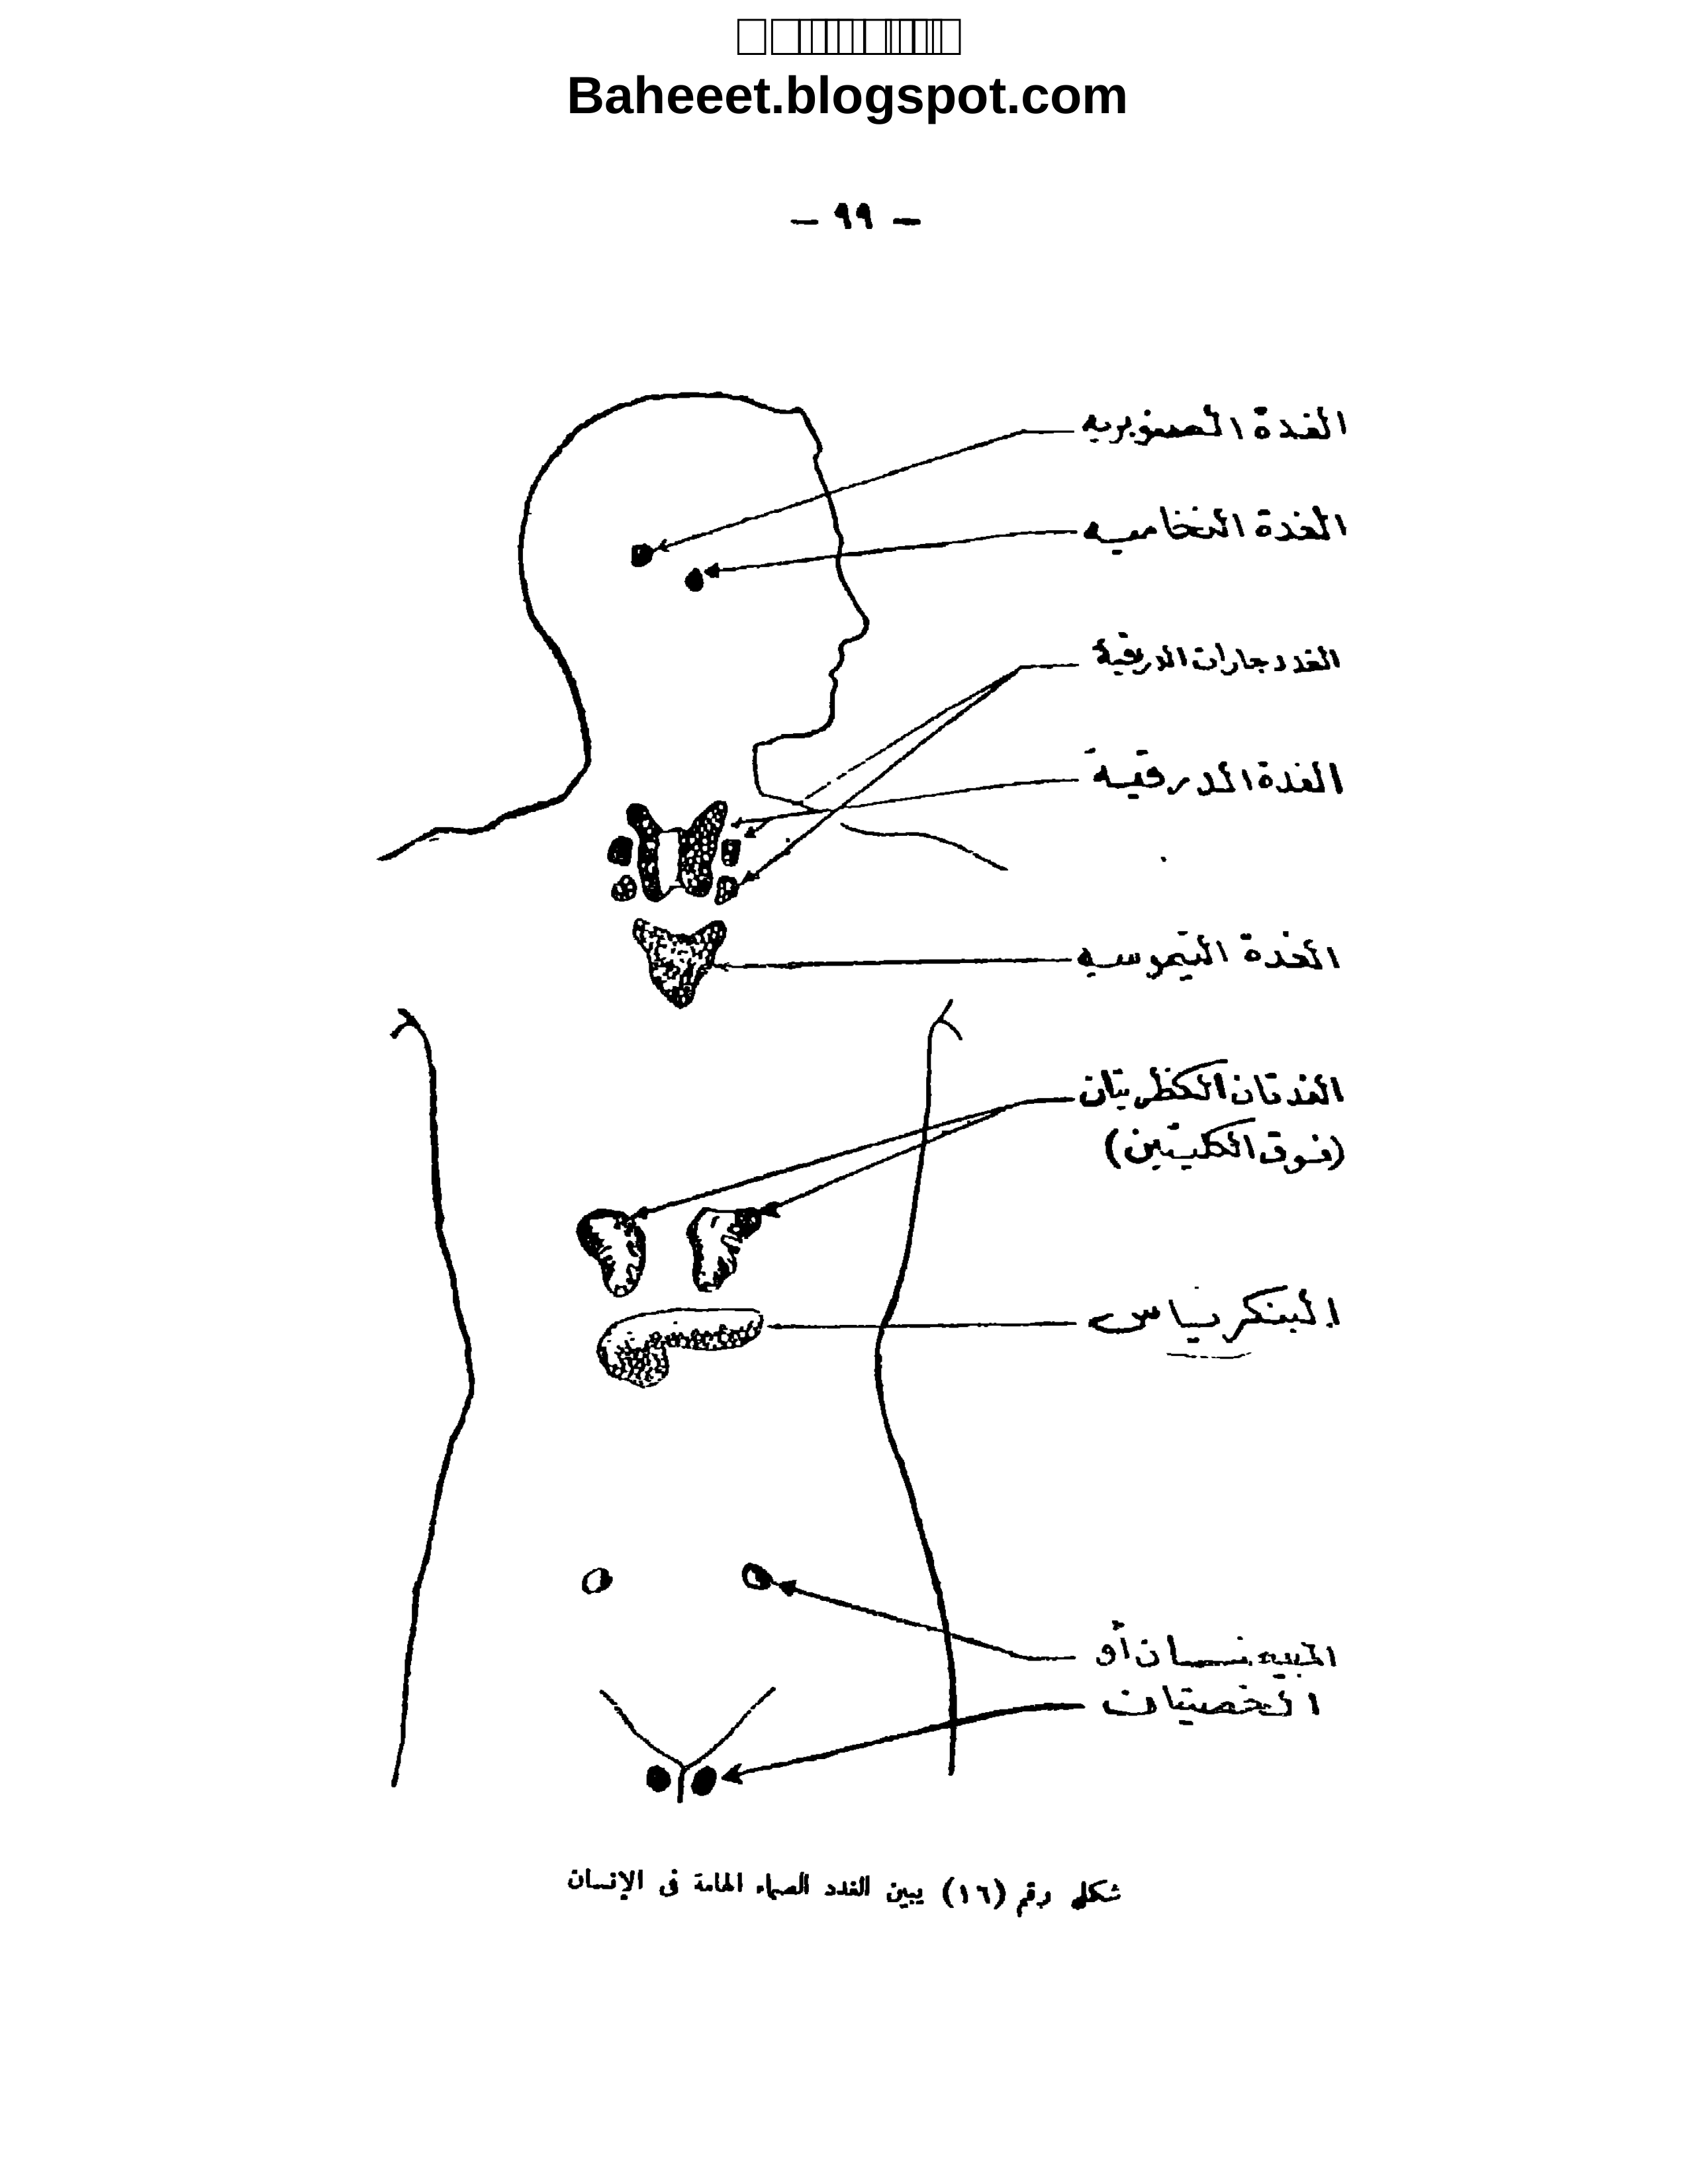 Baheeet.blogspot.com
— ٩٩ —
الغدة الصنوبريه
الغدة النخاميه
الغدد جارات الدرقية
الغدة الدرقية
الغدة التيموسيه
الغدتان الكظريتان
(فوق الكليتين)
البنكرياس
المبيضان أو
الخصيتان
شكل رقم (١٦) يبين الغدد الصماء الهامة فى الإنسان